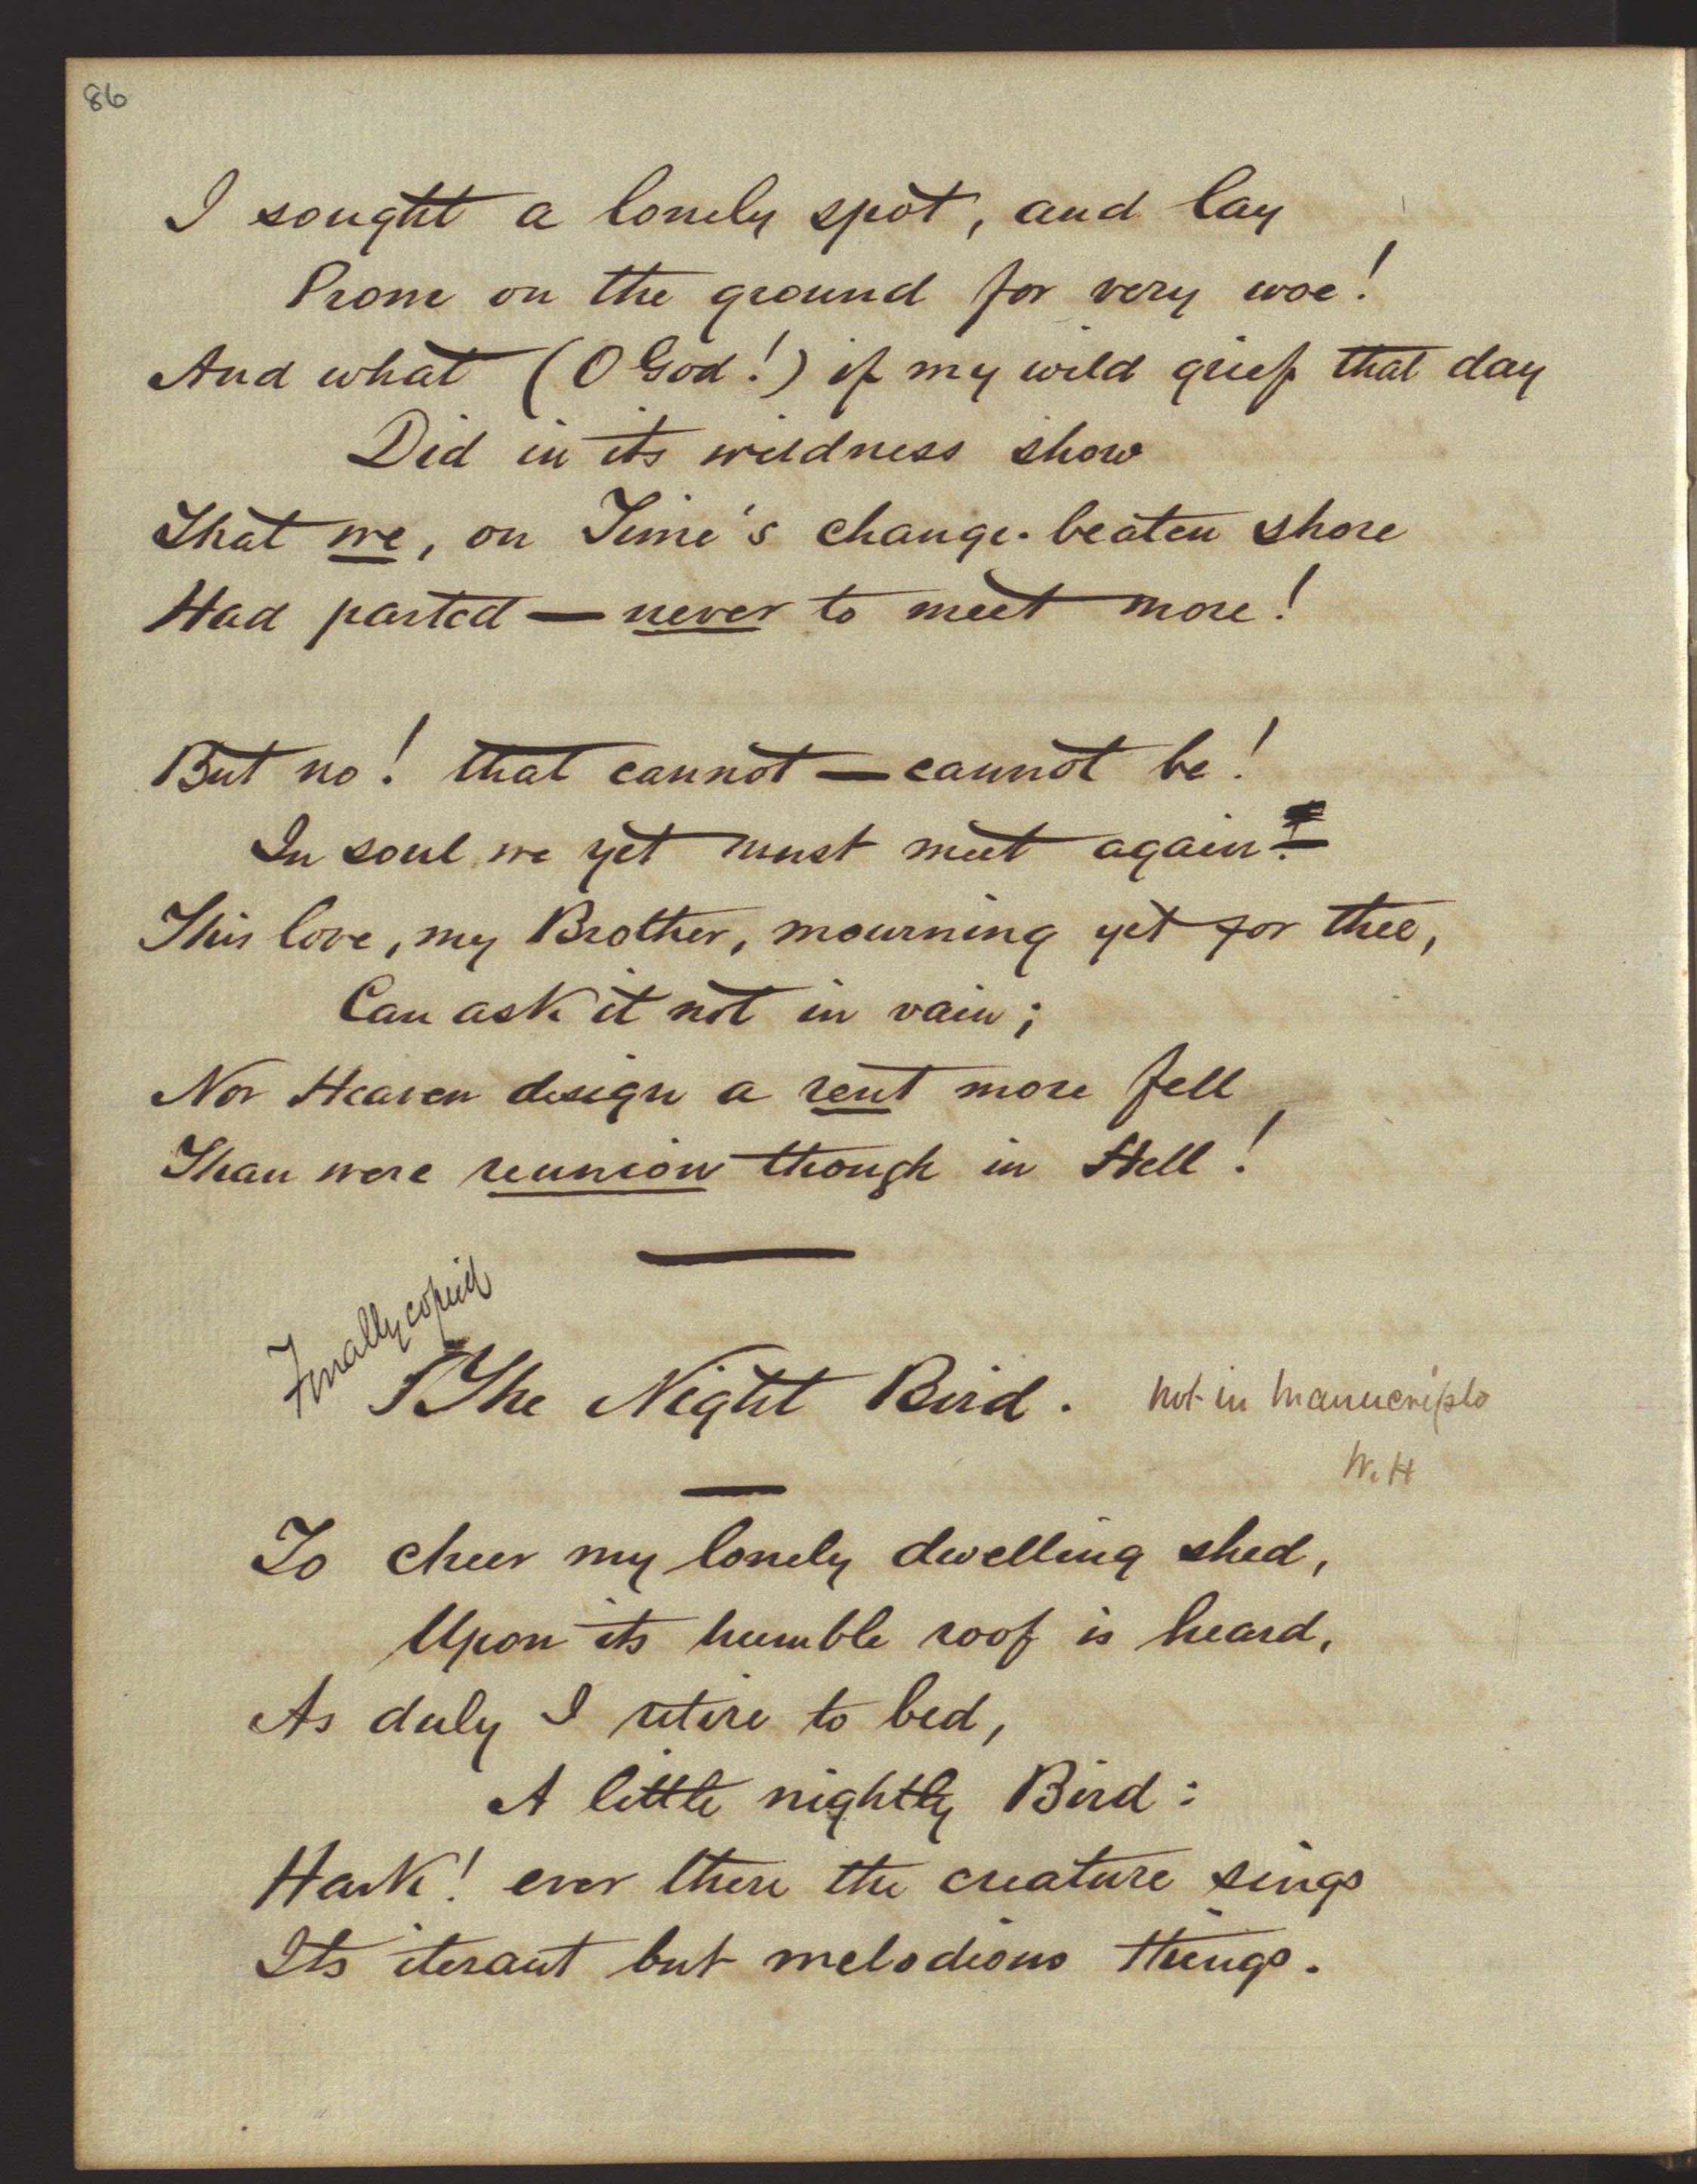 86
I sought a lonely spot, and lay
Prone on the ground for very woe!
And what (O God!) if my wild grief that day
Did in its wildness show
That we, on Time's change-beaten shore
Had parted — never to meet more!
But no! that cannot — cannot be!
In soul we yet must meet again!—
This love, my Brother, mourning yet for thee,
Can ask it not in vain;
Nor Heaven design a rent more fell
Than were reunion though in Hell!
Finally copied
The Night Bird. not in manuscripts
W. H
To cheer my lonely dwelling shed,
Upon its humble roof is heard,
As duly I retire to bed,
A little nightly Bird:
Hark! ever there the creature sings
Its iterant but melodious things.